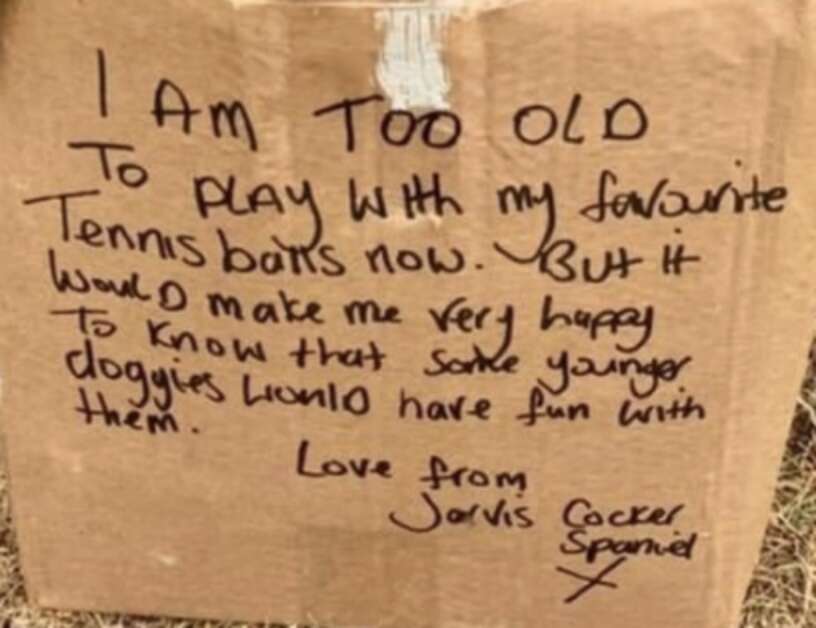 I AM TOO OLD
To PLAY WITH my favourite
Tennis balls now. But it
Would make me very happy
To know that some younger
doggies would have fun with
them.
Love from
Jarvis Cocker
Spaniel
X